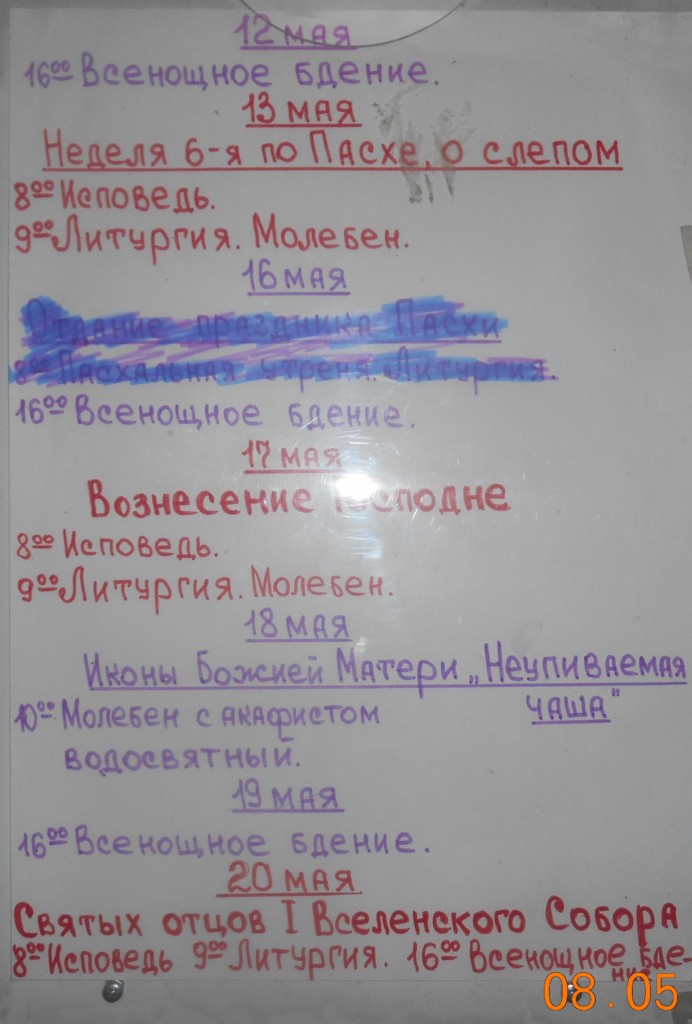 12 мая
16⁰⁰ Всенощное бдение.
13 мая
Неделя 6-я по Пасхе, о слепом
8⁰⁰ Исповедь.
9⁰⁰ Литургия. Молебен.
16 мая
Отдание праздника Пасхи
8⁰⁰ Пасхальная утреня. Литургия.
16⁰⁰ Всенощное бдение.
17 мая
Вознесение Господне
8⁰⁰ Исповедь.
9⁰⁰ Литургия. Молебен.
18 мая
Иконы Божией Матери „Неупиваемая
чаша"
10⁰⁰ Молебен с акафистом
водосвятный.
19 мая
16⁰⁰ Всенощное бдение.
20 мая
Святых отцов I Вселенского Собора
8⁰⁰ Исповедь 9⁰⁰ Литургия. 16⁰⁰ Всенощное бде-
ние
08.05